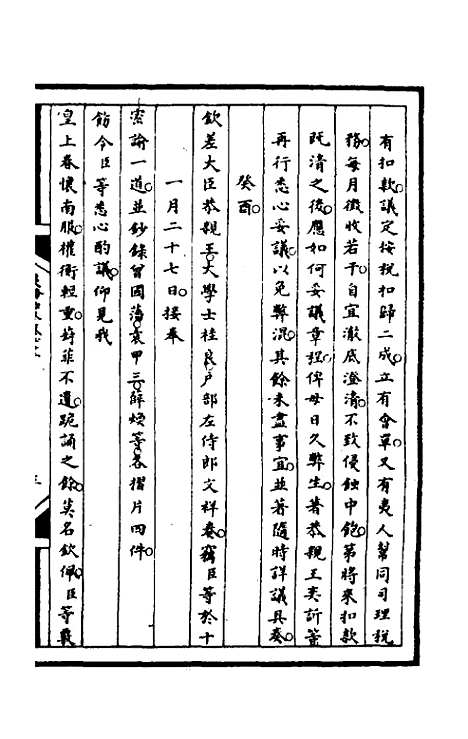 有扣款。議定按稅扣歸二成。立有會單。又有夷人幫同司理稅
務。每月徵收若干。自宜澈底澄清。不致侵蝕中飽。第將來扣款
既清之後。應如何妥議章程。俾毋日久弊生。著恭親王奕訢等
再行悉心妥議。以免弊混。其餘未盡事宜。並著隨時詳議具奏。
癸酉。
欽差大臣恭親王。大學士桂良。戶部左侍郎文祥奏。竊臣等於十
一月二十七日。接奉
密諭一道。並鈔錄曾國藩。袁甲三。薛煥等。各摺片四件。
飭令臣等悉心酌議。仰見我
皇上眷懷南服。權衡輕重。葑菲不遺。跪誦之餘。莫名欽佩。臣等裁